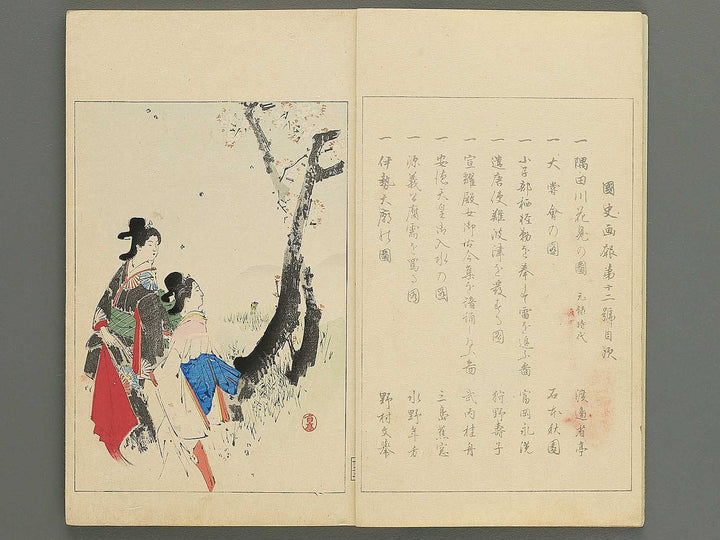 國史画報第十二號目次
一 隅田川花見の圖 元禄時代 渡邊省亭
一 大嘗會の圖 石本秋園
一 小子部栖軽物を奉して雷を追ふ圖 富岡永洗
一 遣唐使難波津を發する圖 狩野壽子
一 宣耀殿女御古今集を諳誦し給ふ圖 武内桂舟
一 安徳天皇御入水の圖 三島蕉窓
一 源義公腐儒を罵る圖 水野年方
一 伊勢大廟の圖 野村文挙
省亭